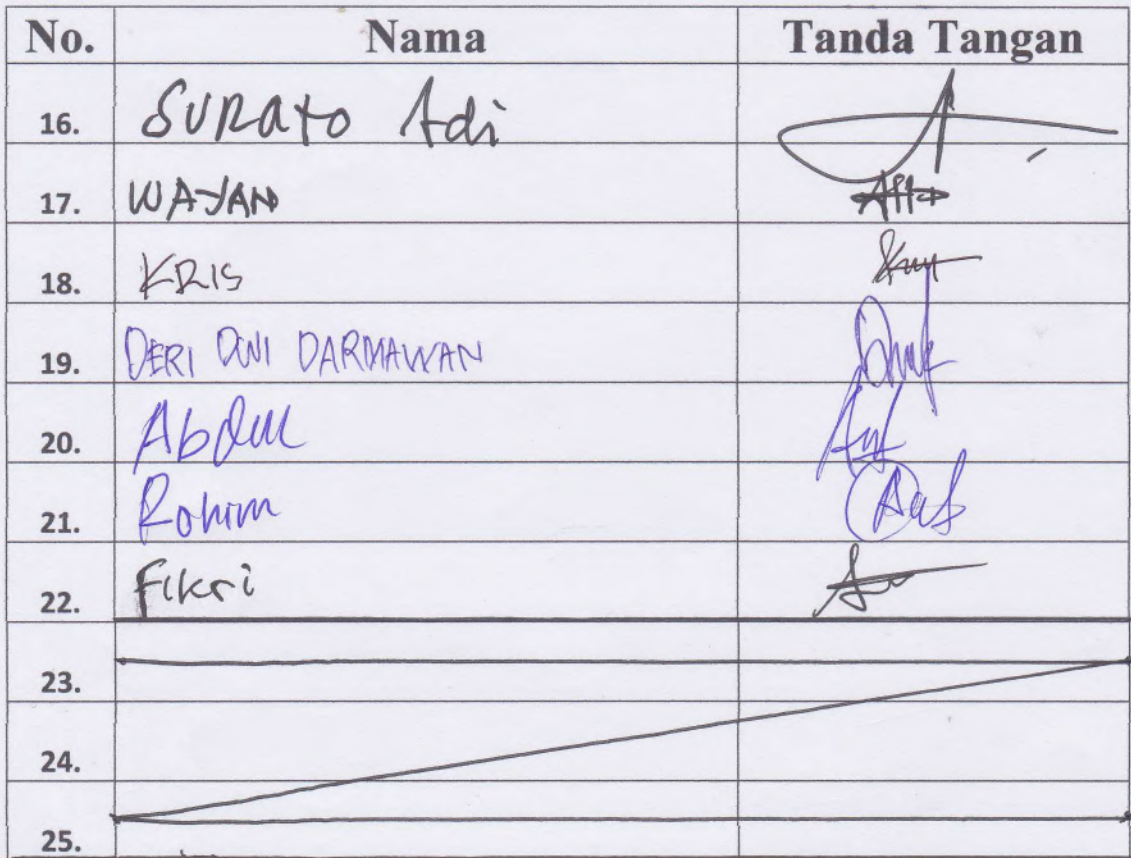 No. Nama Tanda Tangan
16. SURATO Adi
17. WAYAN
18. KRIS
19. DERI DWI DARMAWAN
20. Abdul
21. Rohim
22. Fikri
23.
24.
25.